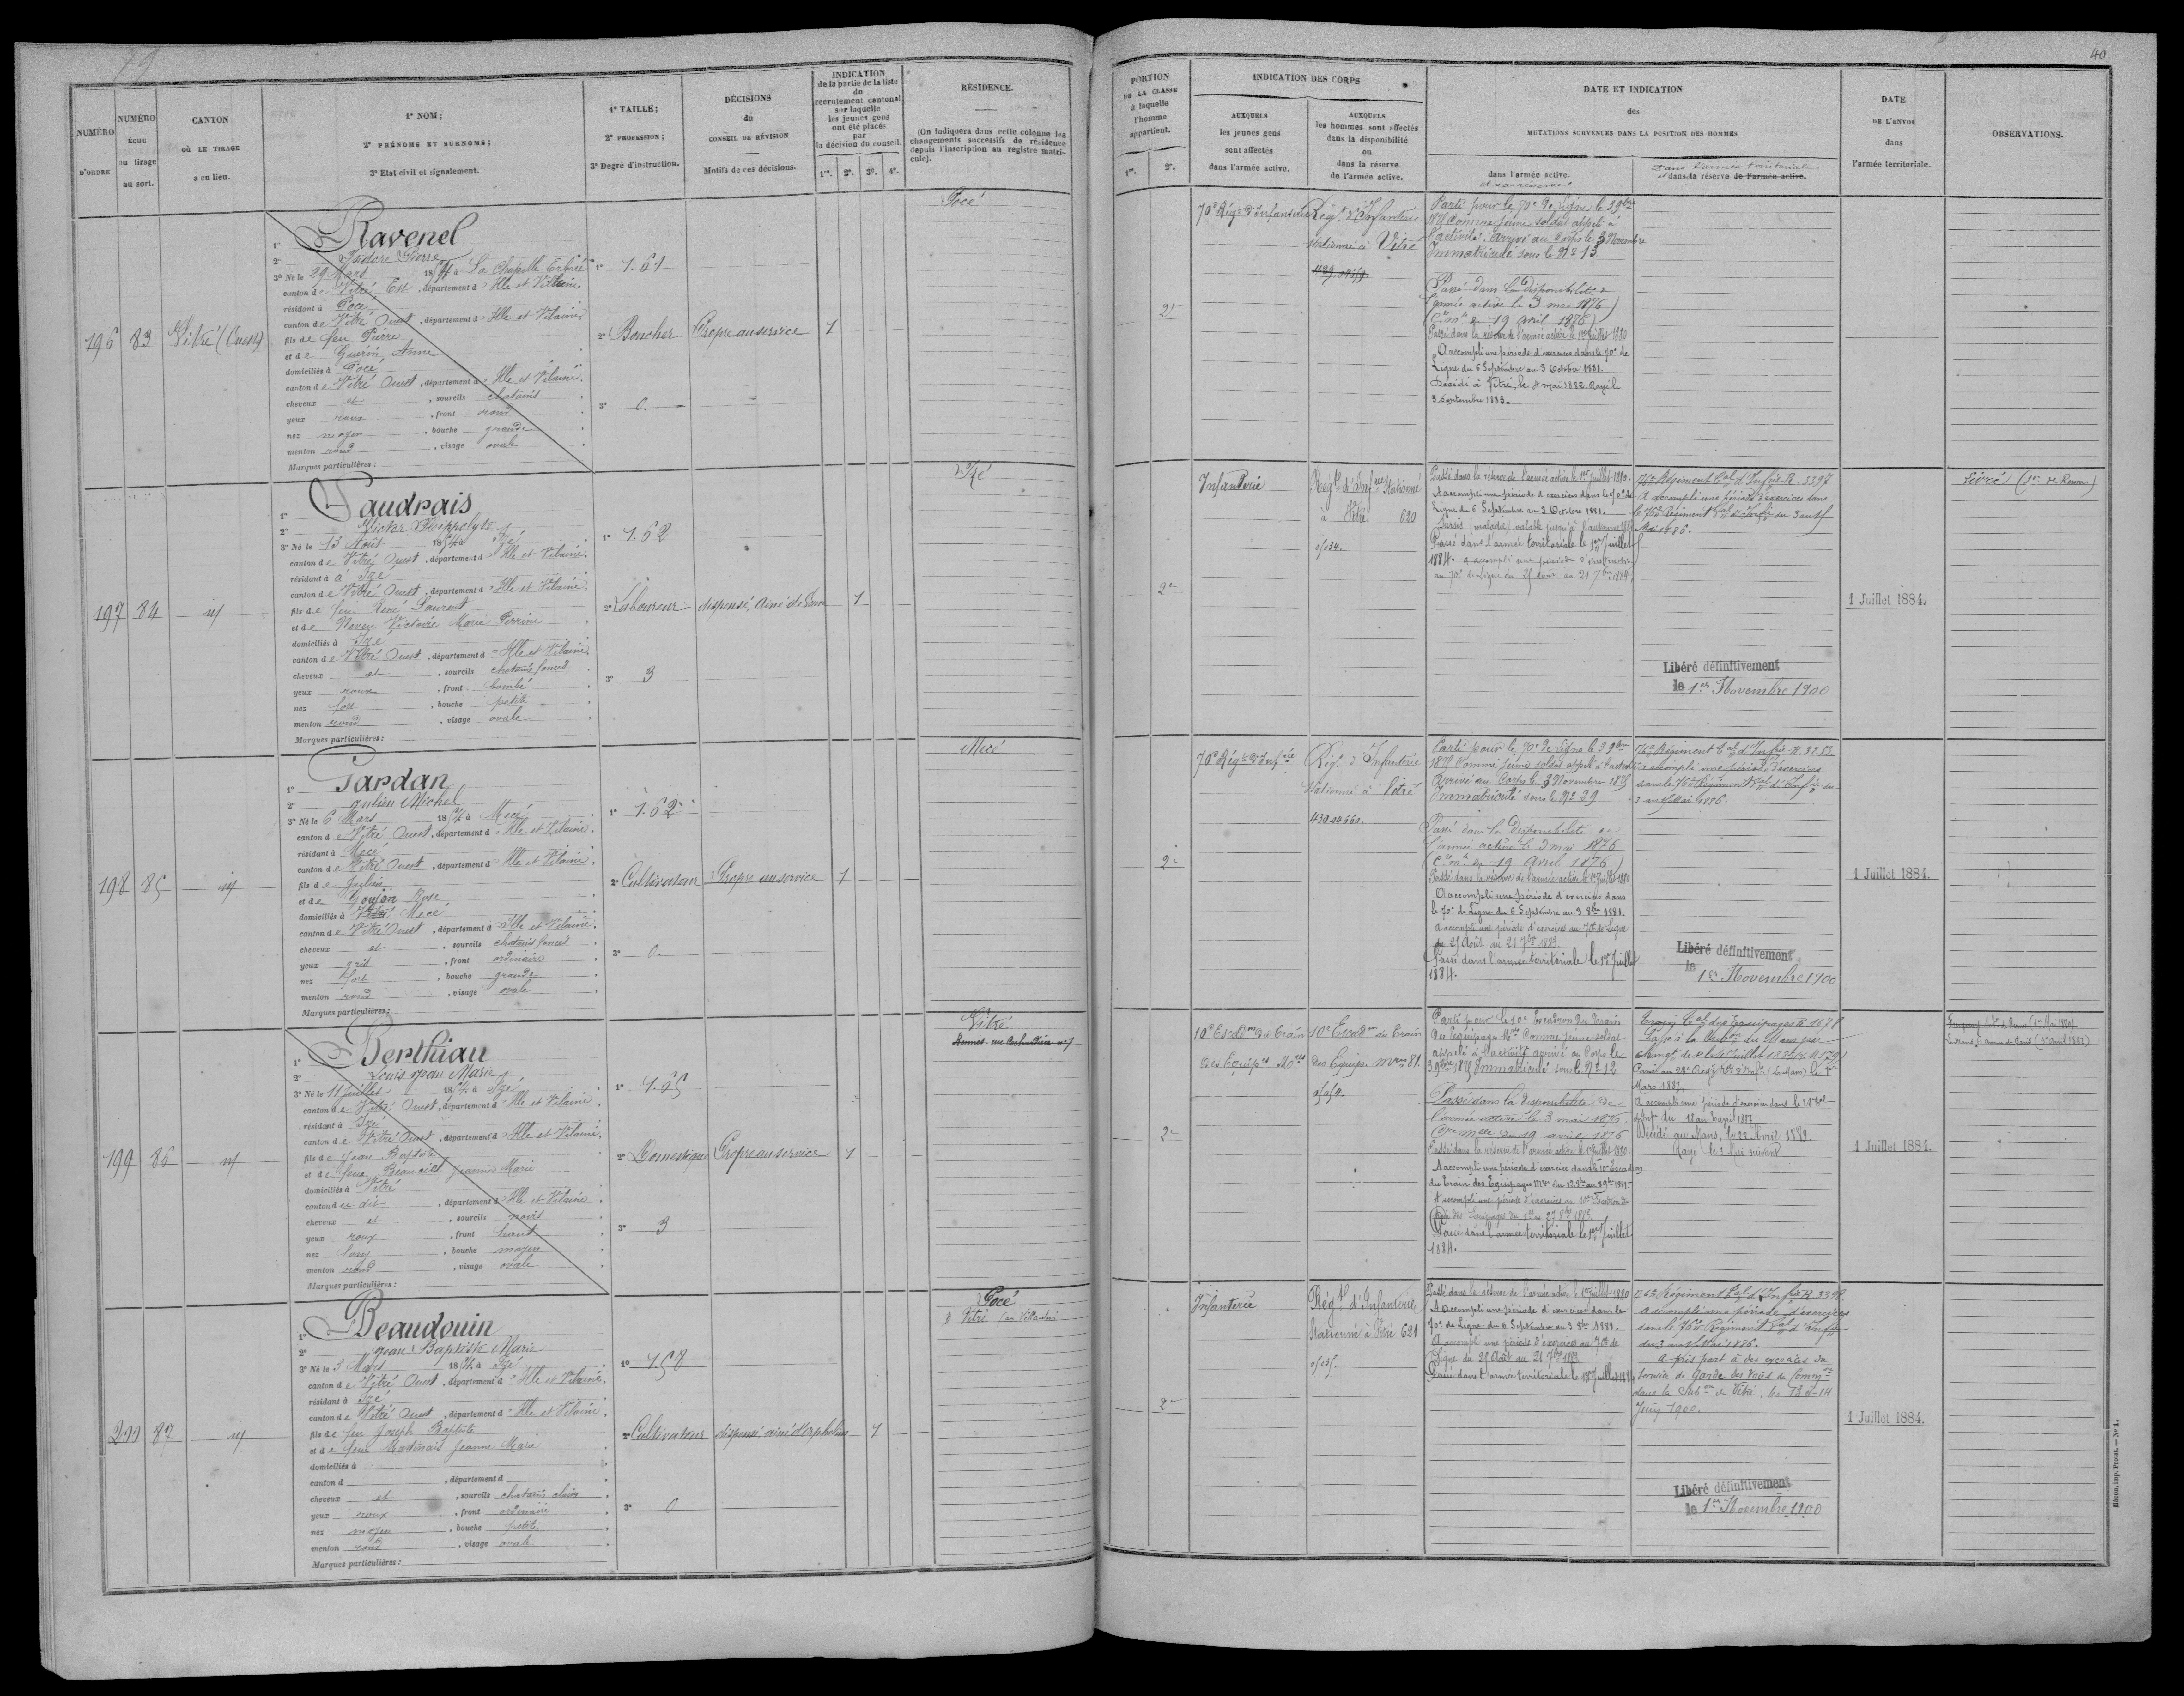 79
NUMÉRO D'ORDRE
NUMÉRO ÉCHU au tirage au sort.
CANTON OÙ LE TIRAGE a eu lieu.
1° NOM;
2° PRÉNOMS ET SURNOMS;
3° Etat civil et signalement.
1° TAILLE;
2° PROFESSION;
3° Degré d'instruction.
DÉCISIONS du CONSEIL DE RÉVISION
Motifs de ces décisions.
INDICATION de la partie de la liste du recrutement cantonal sur laquelle les jeunes gens ont été placés par la décision du conseil.
1re. 2e. 3e. 4e.
RÉSIDENCE.
(On indiquera dans cette colonne les changements successifs de résidence depuis l'inscription au registre matricule).
196
83
Vitré (Ouest)
1° Ravenel
2° Isidore Pierre
3° Né le 29 Mars 1854 à La Chapelle Erbrée
canton de Vitré Est, département d'Ille et Vilaine
résidant à Pocé
canton de Vitré Ouest, département d'Ille et Vilaine
fils de feu Pierre
et de Guérin Anne
domiciliés à Pocé
canton de Vitré Ouest, département d'Ille et Vilaine.
cheveux et, sourcils chatains
yeux roux, front rond
nez moyen, bouche grande
menton rond, visage ovale
Marques particulières:
1° 1.61
2° Boucher
3° 0.
Propre au service
1
Pocé
197
84
id
1° Vaudrais
2° Victor Hippolyte
3° Né le 13 Août 1854 à Izé
canton de Vitré Ouest, département d'Ille et Vilaine.
résidant à à Izé
canton de Vitré Ouest, département d'Ille et Vilaine.
fils de feu René Laurent
et de Victoire Marie Perrine
domiciliés à Izé
canton de Vitré Ouest, département d'Ille et Vilaine
cheveux et, sourcils chatains foncés
yeux roux, front bombé
nez fort, bouche petite
menton rond, visage ovale
Marques particulières:
1° 1.62
2° Laboureur
3° 3
dispensé, ainé de veuve
1
Izé
198
85
id
1° Jardan
2° Julien Michel
3° Né le 6 Mars 1854 à Mecé
canton de Vitré Ouest, département d'Ille et Vilaine.
résidant à Mecé
canton de Vitré Ouest, département d'Ille et Vilaine.
fils de Julien
et de Goujon Rose
domiciliés à Mecé
canton de Vitré Ouest, département d'Ille et Vilaine.
cheveux et, sourcils chatains foncés
yeux gris, front ordinaire
nez fort, bouche grande
menton rond, visage ovale
Marques particulières:
1° 1.62
2° Cultivateur
3° 0.
Propre au service
1
Mecé
199
86
id
1° Berthiau
2° Louis Jean Marie
3° Né le 11 Juillet 1854 à Izé
canton de Vitré Ouest, département d'Ille et Vilaine.
résidant à Izé
canton de Vitré Ouest, département d'Ille et Vilaine.
fils de Jean Baptiste
et de feue Beauciel Jeanne Marie
domiciliés à Vitré
canton du dit, département d'Ille et Vilaine
cheveux et, sourcils noirs
yeux roux, front haut
nez long, bouche moyen
menton rond, visage ovale
Marques particulières:
1° 1.65
2° Domestique
3° 3
Propre au service
1
Vitré
200
87
id
1° Beaudouin
2° Jean Baptiste Marie
3° Né le 3 Mars 1854 à Izé
canton de Vitré Ouest, département d'Ille et Vilaine.
résidant à Izé
canton de Vitré Ouest, département d'Ille et Vilaine.
fils de feu Joseph Baptiste
et de feue Martinais Jeanne Marie
domiciliés à
canton d, département d
cheveux et, sourcils chatains clairs
yeux roux, front ordinaire
nez moyen, bouche petite
menton rond, visage ovale
Marques particulières:
1° 1.58
2° Cultivateur
3° 0
dispensé, ainé d'orphelins
1
Pocé
Vitré
40
PORTION DE LA CLASSE à laquelle l'homme appartient.
1re. 2e.
INDICATION DES CORPS
AUXQUELS les jeunes gens sont affectés dans l'armée active.
AUXQUELS les hommes sont affectés dans la disponibilité ou dans la réserve de l'armée active.
DATE ET INDICATION des MUTATIONS SURVENUES DANS LA POSITION DES HOMMES
dans l'armée active.
dans l'armée territoriale
et dans la réserve de l'armée active.
DATE DE L'ENVOI dans l'armée territoriale.
OBSERVATIONS.
2e
70e Régt d'Infanterie
Régt d'Infanterie
stationné à Vitré
Parti pour le 70e de Ligne le 3 9bre
1875 Comme jeune soldat appelé à
l'activité. Arrivé au Corps le 3 Novembre
Immatriculé sous le No 13.
Passé dans la disponibilité de
l'armée active le 3 mai 1876
(Cre mlle du 19 avril 1876)
Passé dans la réserve de l'armée active le 1er Juillet 1880
A accompli une période d'exercices dans le 70e de
Ligne du 6 Septembre au 3 Octobre 1881.
Décédé à Vitré, le 8 mai 1882. Rayé le
3 Septembre 1883.
2e
Infanterie
Régt d'Infrie Stationné
à Vitré. 620
Passé dans la réserve de l'armée active le 1er Juillet 1880.
A accompli une période d'exercices dans le 70e de
Ligne du 6 Septembre au 3 Octobre 1881.
Sursis (malade) valable jusqu'à l'automne
Passé dans l'armée territoriale le 1er Juillet
1884. a accompli une période d'instruction
au 70e de Ligne du 25 août au 21 7bre 1884
76e Régiment tal d'Infrie R. 3397
A accompli une période d'exercices dans
le 76e Régiment tal d'Infie du 3 au 15
Mai 1886.
Libéré définitivement
le 1er Novembre 1900
1 Juillet 1884.
Livré
2e
70e Régt d'Infrie
Régt d'Infanterie
stationné à Vitré
430
Parti pour le 70e de Ligne le 3 9bre
1875 Comme jeune soldat appelé à l'activité
Arrivé au Corps le 3 Novembre 1875
Immatriculé sous le No 39
Passé dans la disponibilité de
l'armée active le 3 mai 1876
(Cre mlle du 19 Avril 1876)
Passé dans la réserve de l'armée active le 1er Juillet 1880
A accompli une période d'exercices dans
le 70e de Ligne du 6 Septembre au 3 8bre 1881.
A accompli une période d'exercices au 70e de Ligne
du 25 Août au 21 7bre 1883.
Passé dans l'armée territoriale le 1er Juillet
1884.
76e Régiment tal d'Infrie R. 3283.
A accompli une période d'exercices
dans le 76e Régiment tal d'Infie du
3 au 15 Mai 1886.
Libéré définitivement
le 1er Novembre 1900
1 Juillet 1884.
2e
10e Escdon du Train
des Equipes Mres
10e Escdon du Train
des Equip. mres 81.
Parti pour le 10e Escadron du Train
des Equipages Mres Comme jeune soldat
appelé à l'activité arrivé au Corps le
3 9bre 1875 Immatriculé sous le No 12
Passé dans la disponibilité de
l'armée active le 3 mai 1876
Cre mlle du 19 avril 1876
Passé dans la réserve de l'armée active le 1er Juillet 1880.
A accompli une période d'exercices dans le 10e Escadron
du Train des Equipages
Passé dans l'armée territoriale le 1er Juillet
1884.
Mars 1887
A accompli une période d'exercices dans le
Décédé au Mans, le 22 Avril 1889.
Rayé le 2 Mai suivant
1 Juillet 1884.
2e
Infanterie
Régt d'Infanterie
Stationné à Vitré 621
Passé dans la réserve de l'armée active le 1er Juillet 1880
A accompli une période d'exercices dans le
70e de Ligne du 6 Septembre au 3 8bre 1881.
A accompli une période d'exercices au 70e de
Ligne du 25 Août au 21 7bre 1883
Passé dans l'armée territoriale le 1er Juillet 1884
76e Régiment tal d'Infrie R. 3398.
A accompli une période d'exercices
dans le 76e Régiment tal d'Infie
du 3 au 15 Mai 1886.
A pris part à des exercices du
Service de Garde des Voies de Common
dans la Subon de Vitré, les 13 et 14
Juin 1900.
Libéré définitivement
le 1er Novembre 1900
1 Juillet 1884.